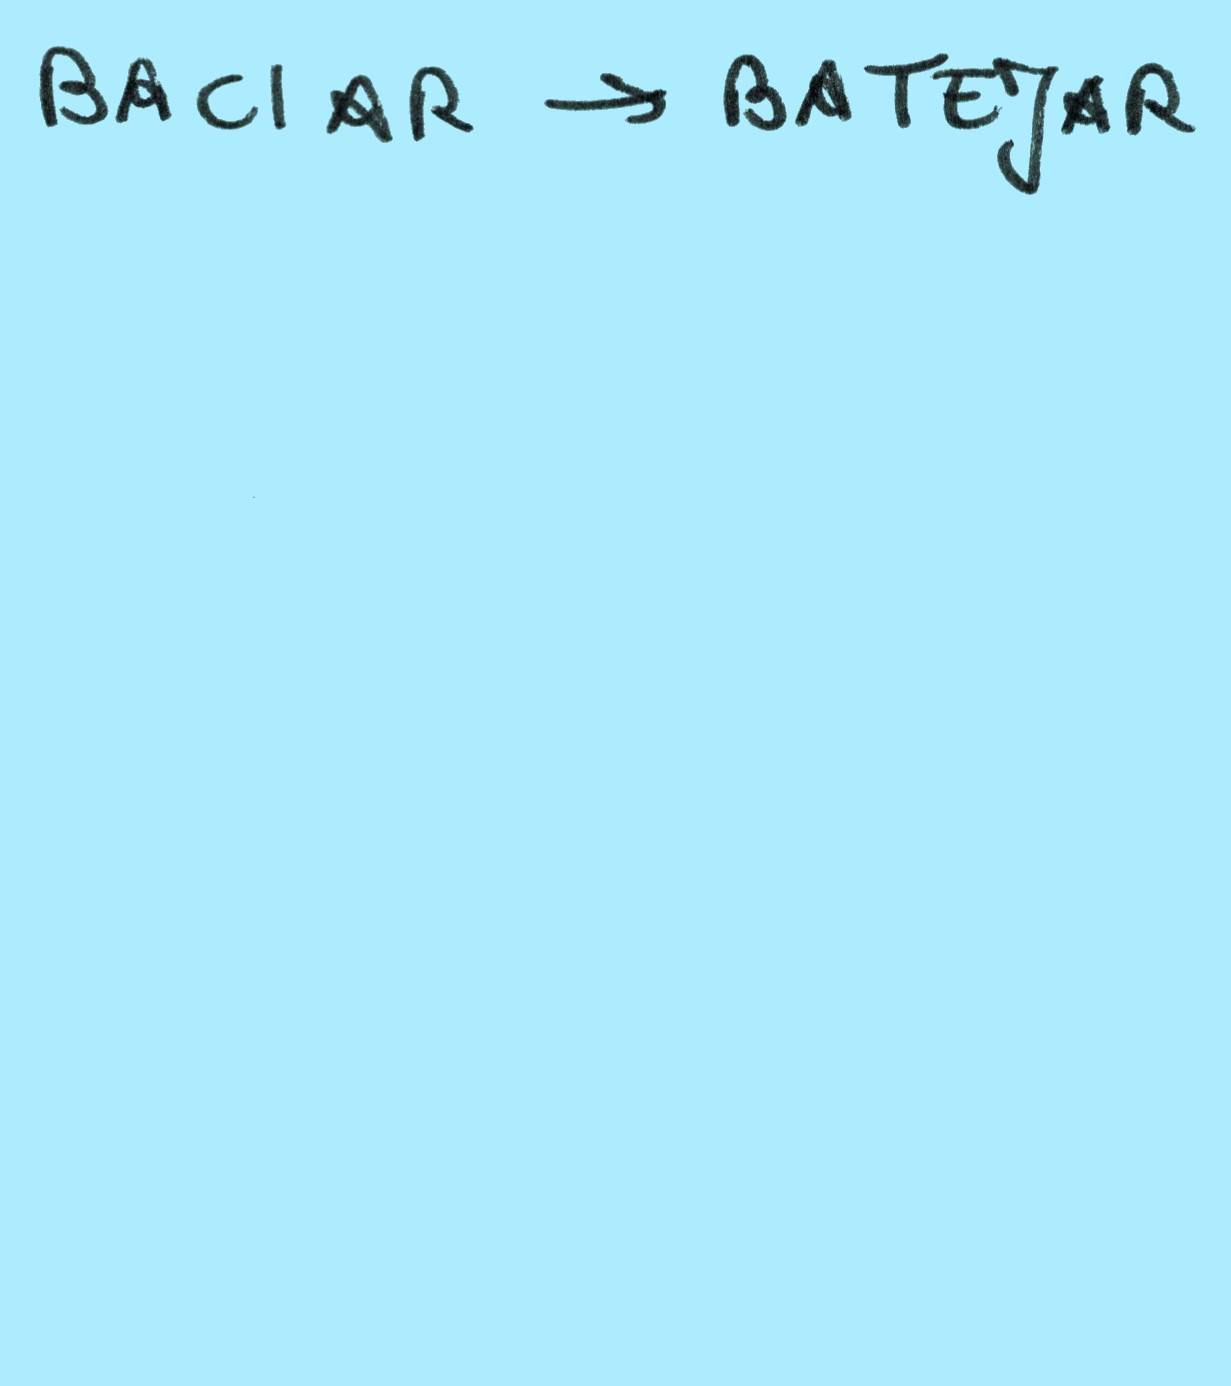 BACIAR → BATEJAR